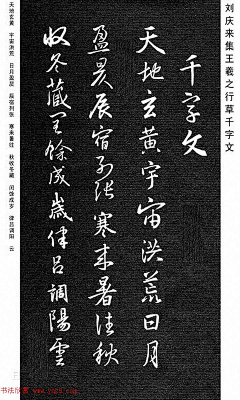 刘庆来集王羲之行草千字文
千字文
天地玄黄宇宙洪荒日月
盈昃辰宿列张寒来暑往秋
收冬藏闰馀成岁律吕調陽雲
天地玄黄 宇宙洪荒 日月盈昃 辰宿列张 寒来暑往 秋收冬藏 闰馀成岁 律吕调阳 云
书法欣赏